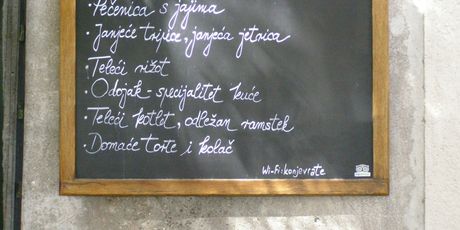 • Pečenica s jajima
• Janjeće tripice, janjeća jetrica
• Teleći rižot
• Odojak - specijalitet kuće
• Teleći kotlet, odležan ramstek
• Domaće torte i kolač
Wi-Fi: konjevrate